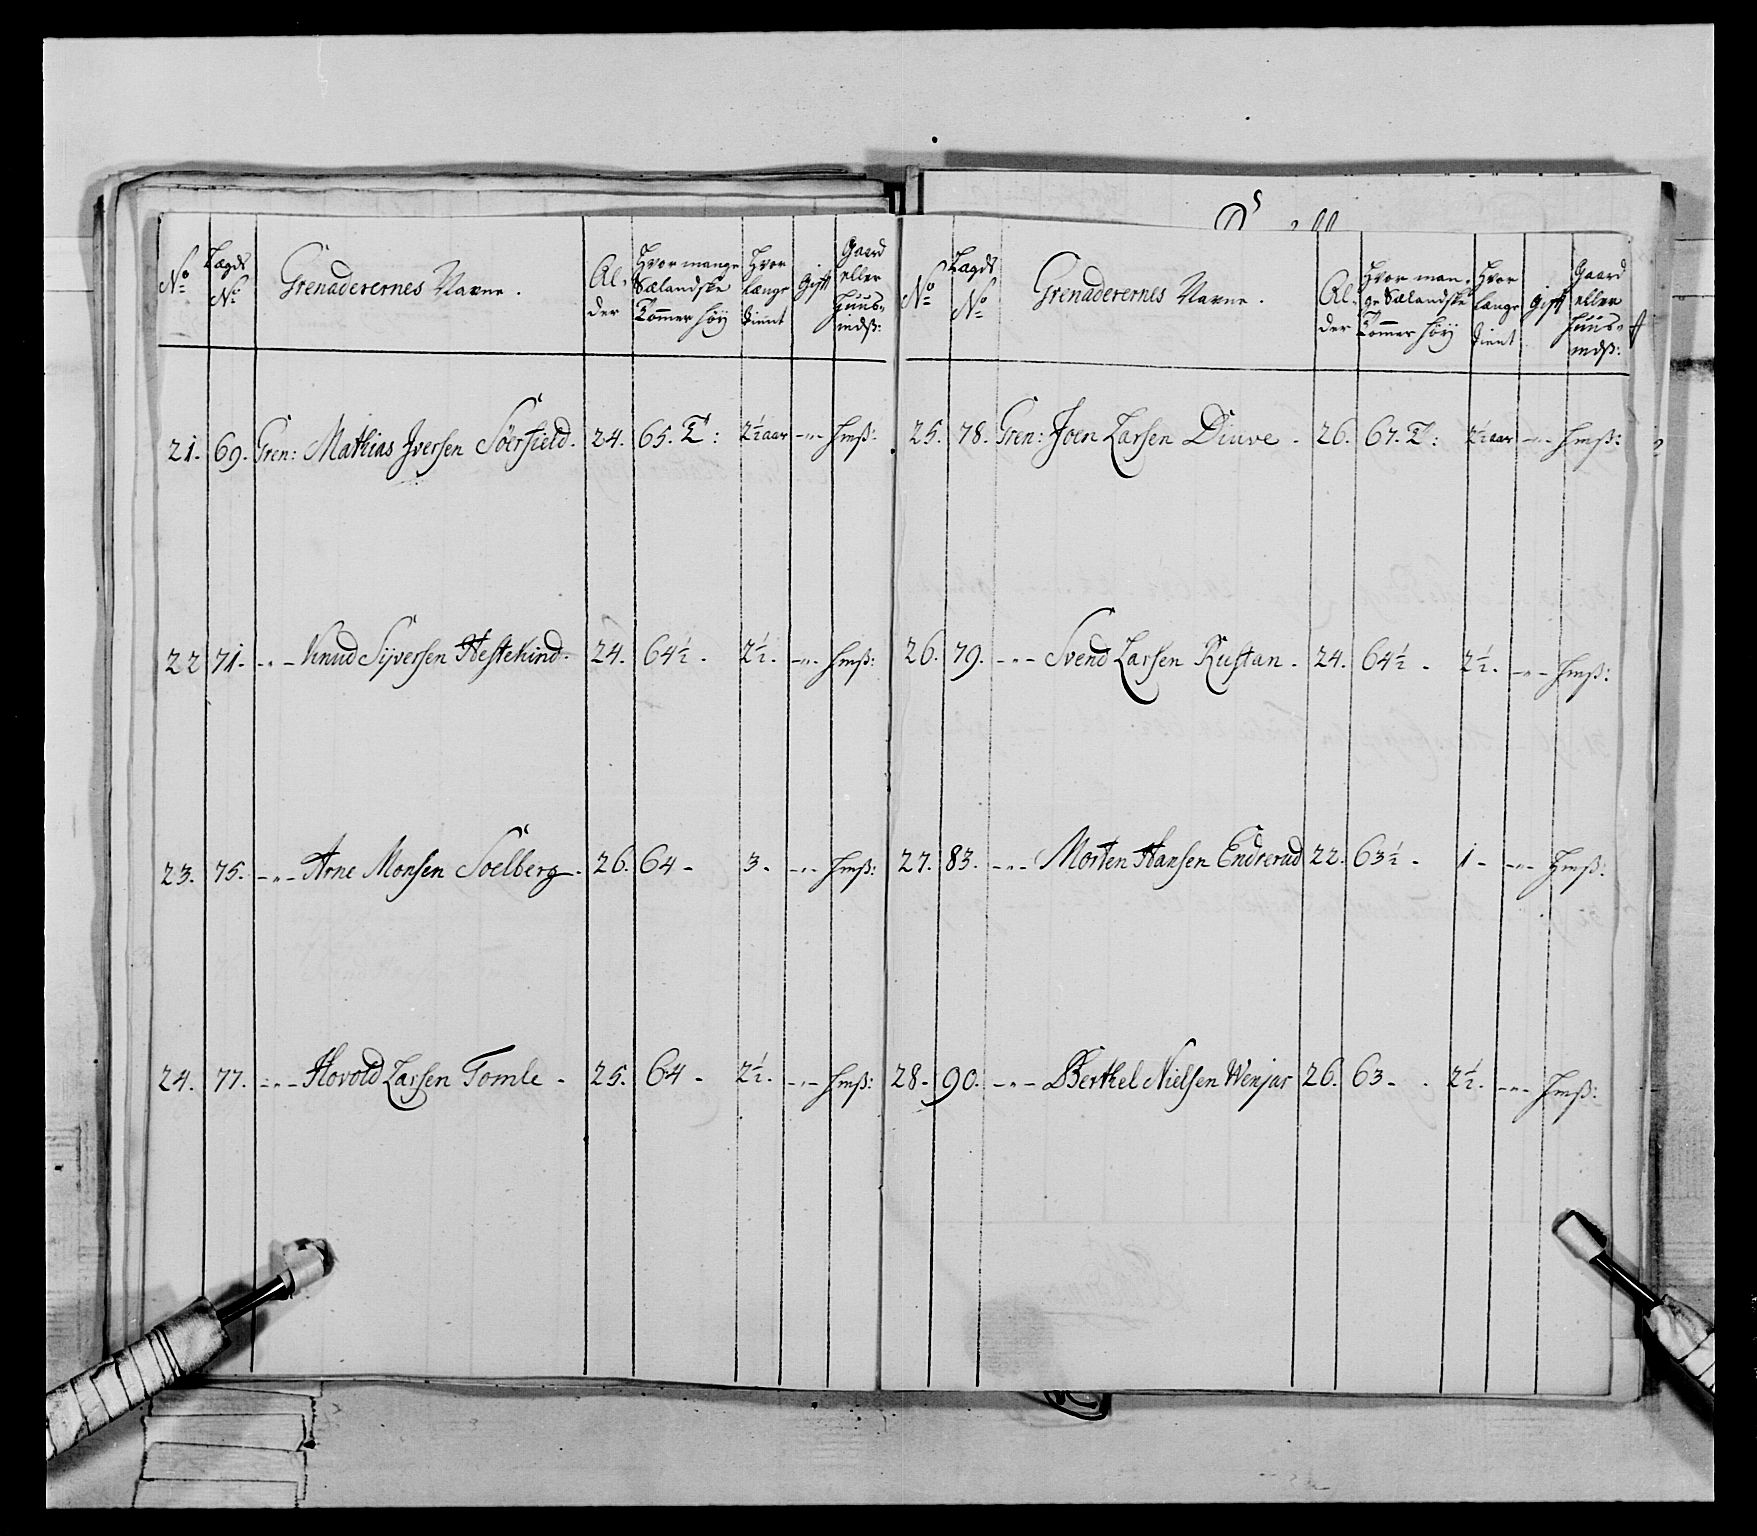 No Lægds No Grenaderernes Navne. Al-der Hvor mange Sælandske Tommer høÿ Hvor længe tient Gift Gaard eller Huus-mdß:
21. 69. Gren: Mathias Iversen Söerfield. 24. 65. T: 2½ aar -"- Hmß:
22 71. -"- Knud Sÿversen Hestekind. 24. 64½ - 2½. -"- Hmß:
23. 75. -"- Arne Monsen Soelberg. 26. 64 - 3. -"- Hmß:
24. 77. -"- Hovold Larsen Tomle - 25. 64 - 2½. -"- Hmß:
No Lægds No Grenaderernes Navne. Al-der Hvor man-ge Sælandske Tommer høÿ Hvor længe tient Gift Gaard eller Huus-mdß:
25. 78. Gren: Joen Larsen Diuve - 26. 67. T: 2½ aar -"- Hmß:
26. 79. -"- Svend Larsen Rustan. 24. 64½ - 2½. -"- Hmß:
27. 83. -"- Morten Hansen Endrerud 22. 63½ - 1 - -"- Hmß:
28. 90. -"- Berthel Nielsen Wenjar 26. 63 - 2½. -"- Hmß: